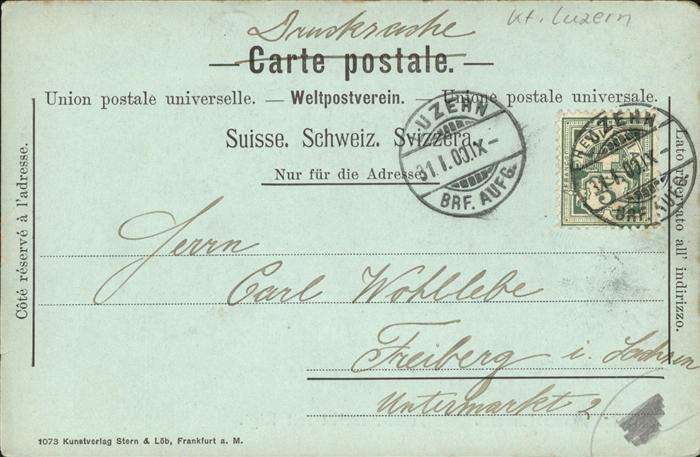 Kt. Luzern
Drucksache
— Carte postale. —
Union postale universelle. — Weltpostverein. — Unione postale universale.
Suisse. Schweiz. Svizzera.
Nur für die Adresse.
LUZERN
31.I.00.IX–
BRF. AUFG.
LUZERN
31.I.00.IX–
BRF. AUFG.
FRANCO
HELVETIA
5
Côté réservé à l'adresse.
Lato riservato all' indirizzo.
Herrn
Carl Wohllebe
Freiberg i. Sachsen
Untermarkt 2
1073 Kunstverlag Stern & Löb, Frankfurt a. M.